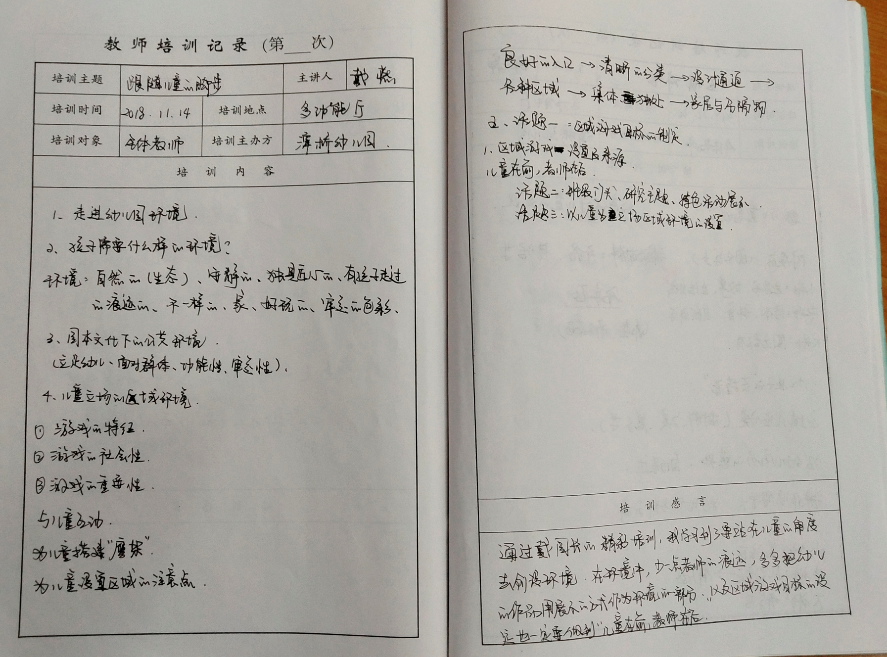 教师培训记录 (第 次)
培训主题 跟随儿童的脚步 主讲人 戴燃
培训时间 2018.11.14 培训地点 多功能厅
培训对象 全体教师 培训主办方 幼儿园
培训内容
1、走进幼儿园环境.
2、孩子需要什么样的环境?
环境:自然的(生态)、安静的、独具匠心的、有孩子走过
的痕迹的、不一样的、家、好玩的、审美的色彩、
3、园本文化下的公共环境.
(立足幼儿、面对群体、功能性、审美性).
4、儿童立场的区域环境.
① 游戏的特征.
② 游戏的社会性.
③ 游戏的重要性.
与儿童互动.
为儿童搭建"鹰架".
为儿童设置区域的注意点.
良好的入口→清晰的分类→设计通道→
各种区域→集体 独处→家居与分隔物.
五、话题一:区域游戏目标的制定
1.区域游戏 设置的来源.
儿童在前,教师在后.
话题二:班级门头、研究主题、特色活动展示.
话题三:以儿童为立场区域环境的设置.
培训感言
通过戴园长的精彩培训,我学习到了要站在儿童的角度
去创设环境.在环境中,少一点教师的痕迹,多多把幼儿
的作品用展示的方式作为环境的一部分.以及区域游戏目标的设
定也一定要做到"儿童在前,教师在后.